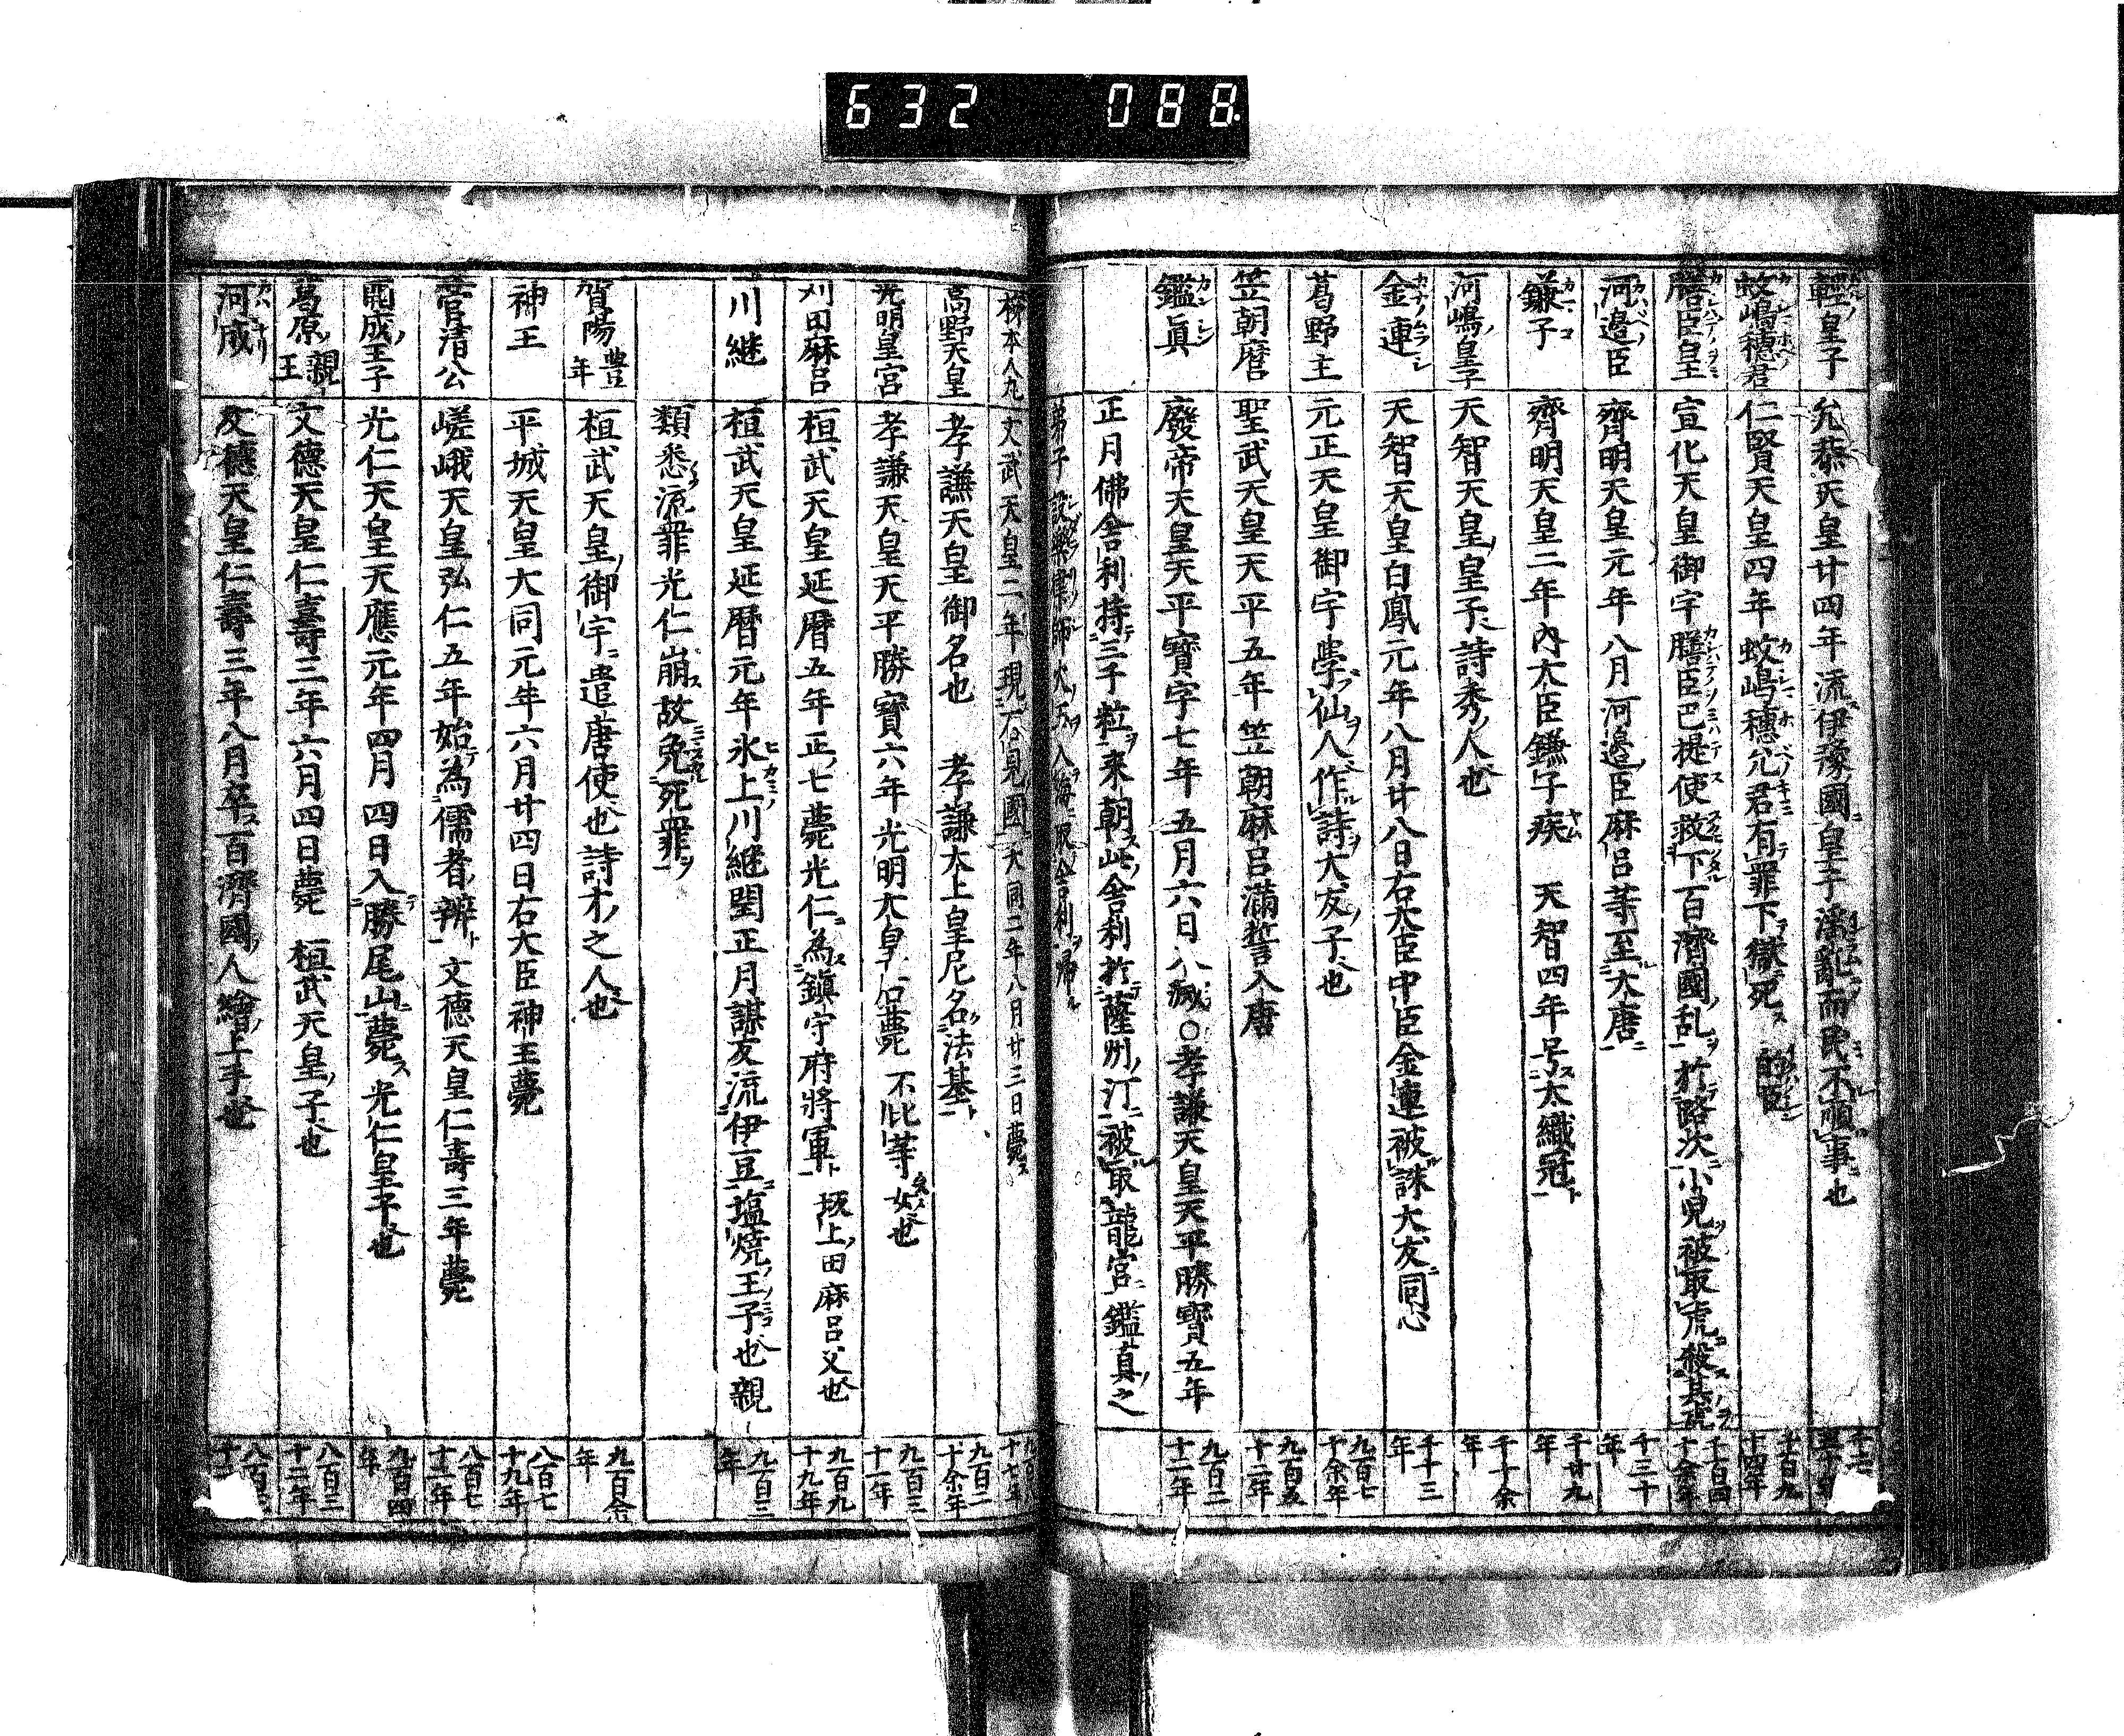 632 088
輕皇子 允恭天皇廿四年流伊豫國皇子淫亂而民不順事也
蚊嶋穗君 仁賢天皇四年蚊嶋穗瓮君有罪下獄死 的臣 千百九十四年
膳臣皇 宣化天皇御宇膳臣巴提使救下百濟國乱於路次小兒被取虎殺其虎 千百四十余年
河邉臣 齊明天皇元年八月河邉臣麻呂等至大唐 千三十年
鎌子 齊明天皇二年內大臣鎌子疾 天智四年号大織冠 千廿九年
河嶋皇子 天智天皇皇子詩秀人也 千十余年
金連 天智天皇白鳳元年八月廿八日右大臣中臣金連被誅大友同心 千十三年
葛野主 元正天皇御宇學仙人作詩大友子也 九百七十余年
笠朝麿 聖武天皇天平五年笠朝麻呂滿誓入唐 九百五十二年
鑑眞 廢帝天皇天平寳字七年五月六日入滅〇孝謙天皇天平勝寳五年 九百二十二年
正月佛舍利持三千粒來朝此舍利於蔭州汀被取龍宮鑑真之
弟子 入海取舍利歸
柿本人丸 文武天皇二年現石見國大同二年八月廿三日薨
高野天皇 孝謙天皇御名也 孝謙太上皇尼名法基 九百二十余年
光明皇宮 孝謙天皇天平勝寳六年光明太皇后薨 不比等女也 九百三十一年
刈田麻呂 桓武天皇延暦五年正七薨光仁為鎭守府將軍 坂上田麻呂父也 九百九十九年
川継 桓武天皇延暦元年氷上川継閏正月謀反流伊豆塩焼王子也親 九百三年
類悉流罪光仁崩故免死罪
賀陽豊年 桓武天皇御宇遣唐使也詩才之人也 九百余年
神王 平城天皇大同元年六月廿四日右大臣神王薨 八百七十九年
菅清公 嵯峨天皇弘仁五年始為儒者辨 文徳天皇仁壽三年薨 八百七十二年
開成王子 光仁天皇天應元年四月四日入勝尾山薨 光仁皇子也 九百四年
葛原親王 文德天皇仁壽三年六月四日薨 桓武天皇子也 八百三十二年
河成 文德天皇仁壽三年八月卒百濟國人繪上手也